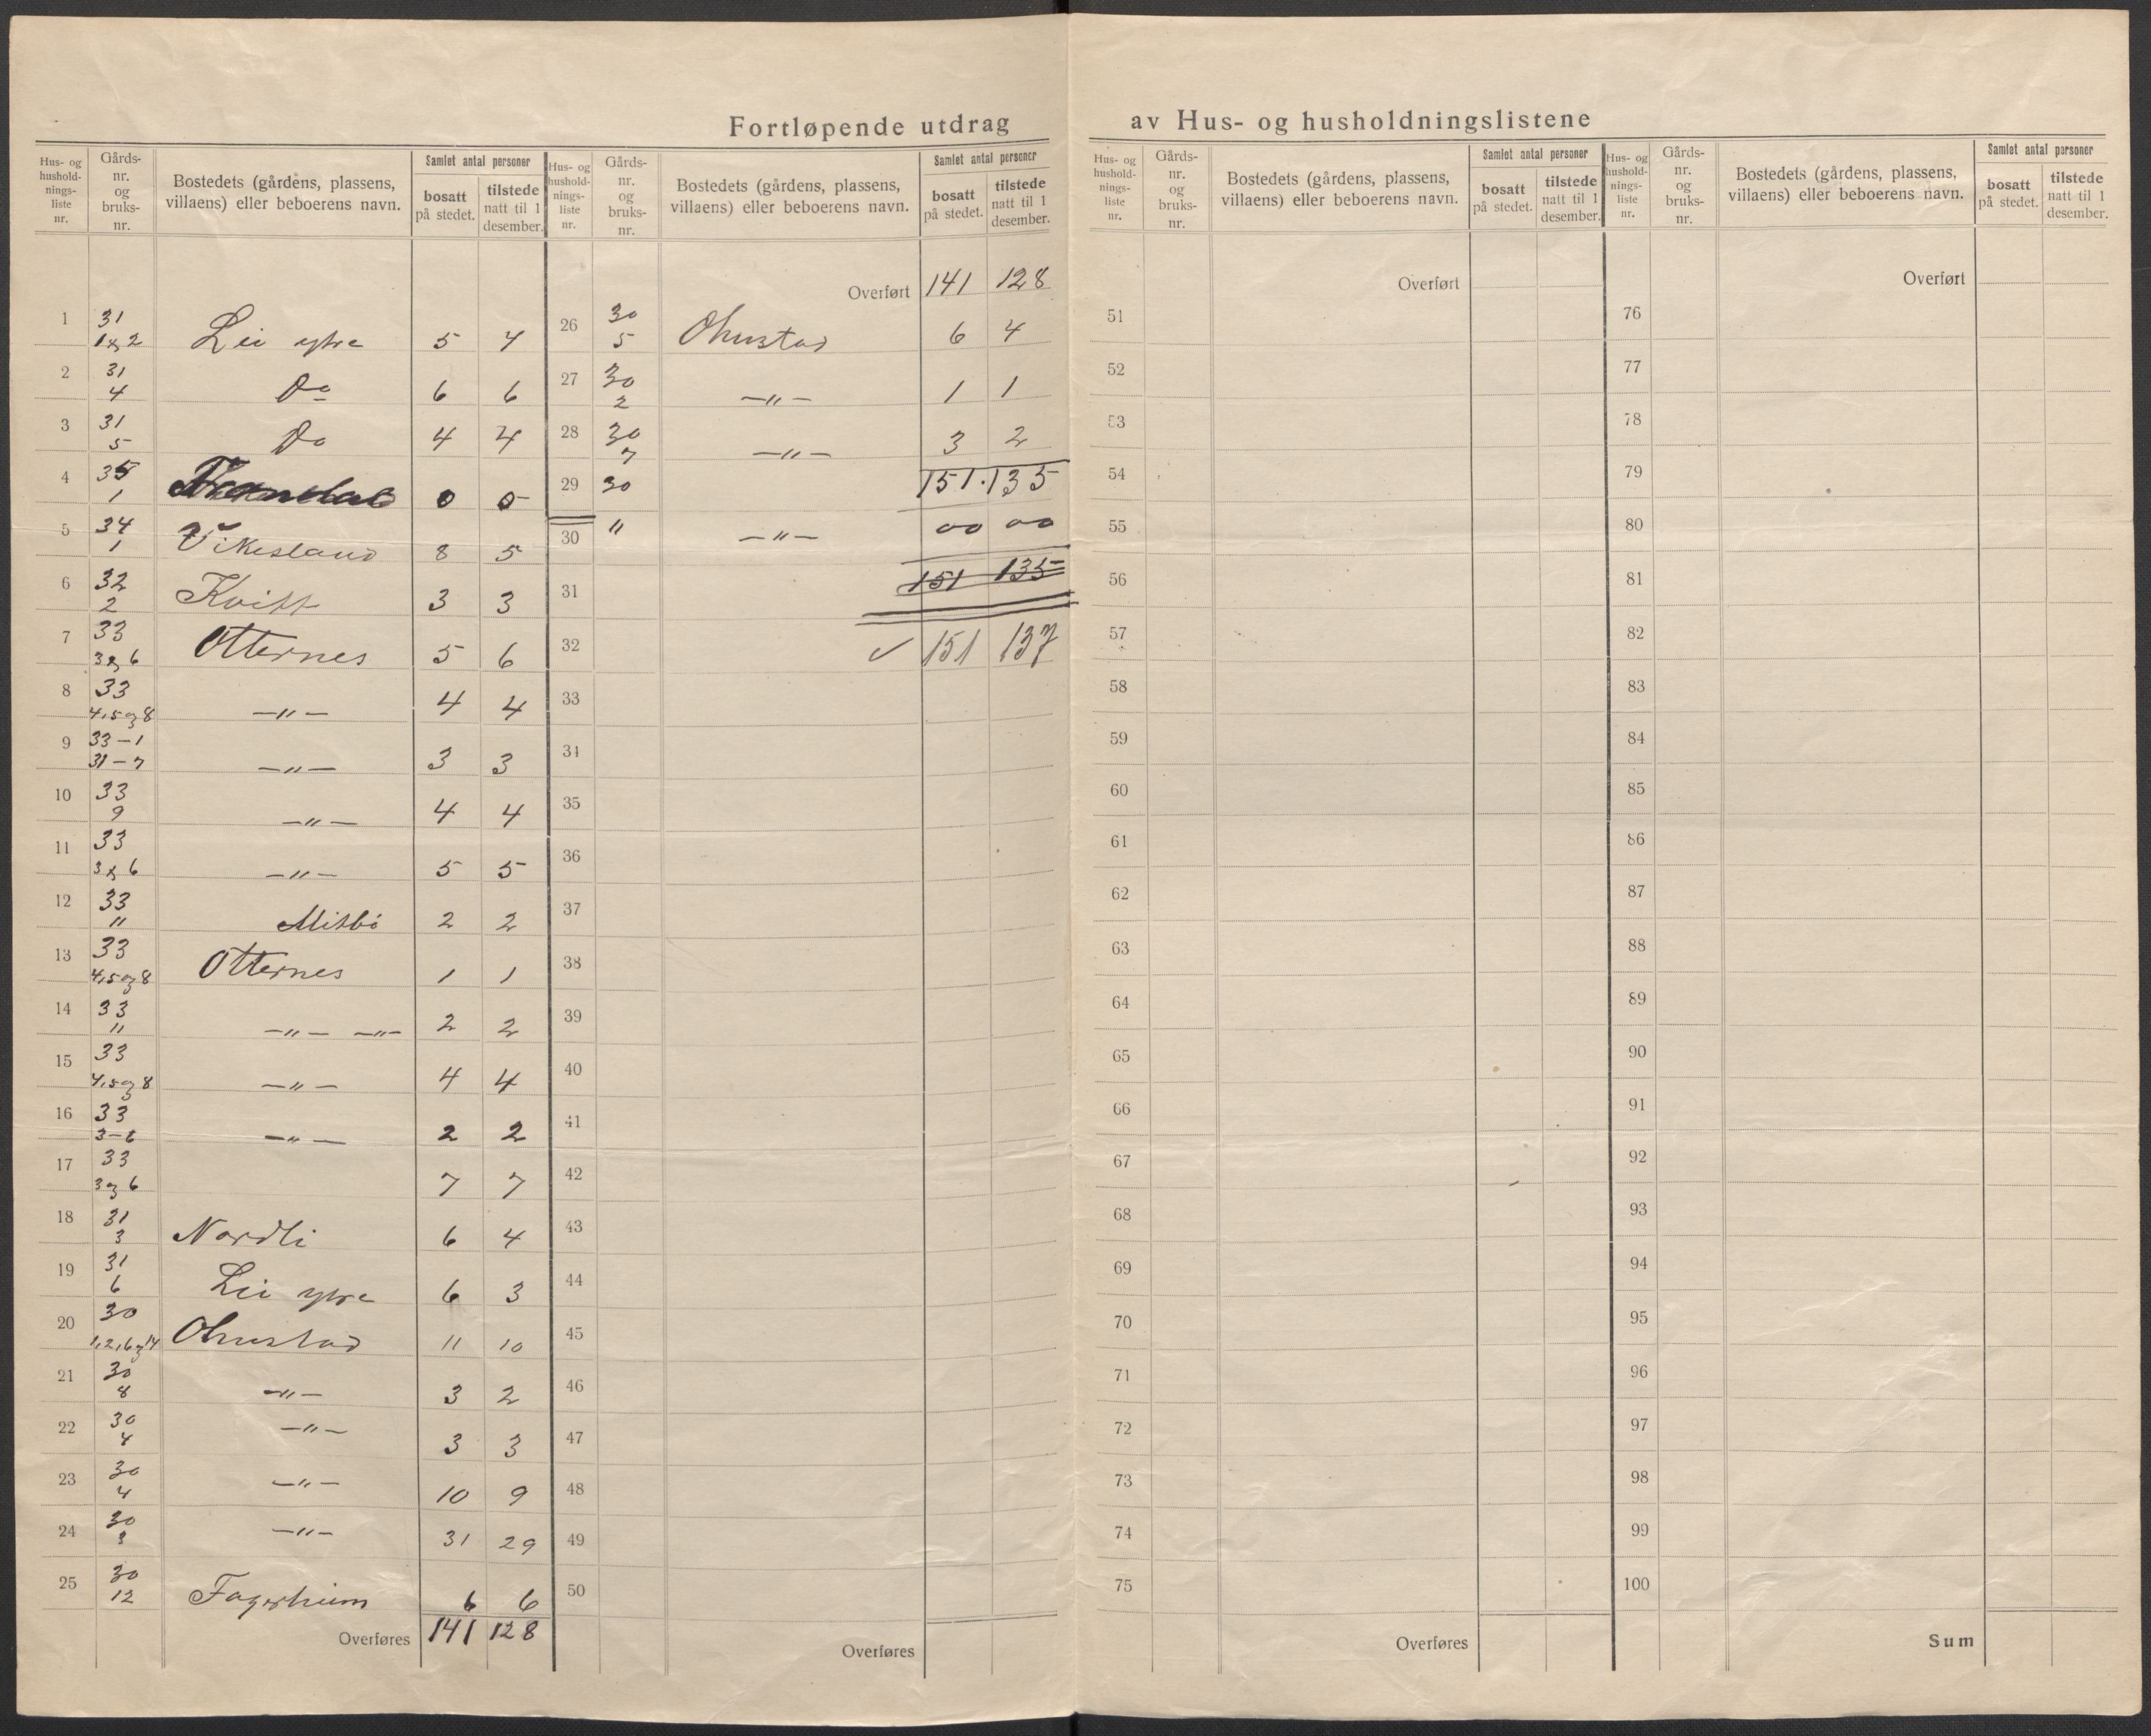 Fortløpende utdrag av Hus- og husholdningslistene
Hus- og hushold-nings-liste nr. Gårds-nr. og bruks-nr. Bostedets (gårdens, plassens, villaens) eller beboerens navn. Samlet antal personer bosatt på stedet. tilstede natt til 1 desember.
1 31 1 og 2 Lii ytre 5 4
2 31 4 Do 6 6
3 31 5 Do 4 4
4 35 1 0 0
5 34 1 Vikesland 8 5
6 32 2 3 3
7 33 3 og 6 Otternes 5 6
8 33 4,5 og 8 —"— 4 4
9 33-1 31-7 —"— 3 3
10 33 9 —"— 4 4
11 33 3 og 6 —"— 5 5
12 33 " 2 2
13 33 4,5 og 8 Otternes 1 1
14 33 " —"— —"— 2 2
15 33 4,5 og 8 —"— 4 4
16 33 3-6 —"— 2 2
17 33 3 og 6 7 7
18 31 3 Nordli 6 4
19 31 6 Lii ytre 6 3
20 30 1,2,6 og 14 Ohnstad 11 10
21 30 8 —"— 3 2
22 30 4 —"— 3 3
23 30 4 —"— 10 9
24 30 3 —"— 31 29
25 30 12 Fagerheim 6 6
Overføres 141 128
Hus- og hushold-nings-liste nr. Gårds-nr. og bruks-nr. Bostedets (gårdens, plassens, villaens) eller beboerens navn. Samlet antal personer bosatt på stedet. tilstede natt til 1 desember.
Overført 141 128
26 30 5 Ohnstad 6 4
27 30 2 —"— 1 1
28 30 7 —"— 3 2
29 30 151. 135
30 " —"— 00 00
31 151 135
32 ✓ 151 137
33
34
35
36
37
38
39
40
41
42
43
44
45
46
47
48
49
50
Overføres
Hus- og hushold-nings-liste nr. Gårds-nr. og bruks-nr. Bostedets (gårdens, plassens, villaens) eller beboerens navn. Samlet antal personer bosatt på stedet. tilstede natt til 1 desember.
Overført
51
52
53
54
55
56
57
58
59
60
61
62
63
64
65
66
67
68
69
70
71
72
73
74
75
Overføres
Hus- og hushold-nings-liste nr. Gårds-nr. og bruks-nr. Bostedets (gårdens, plassens, villaens) eller beboerens navn. Samlet antal personer bosatt på stedet. tilstede natt til 1 desember.
Overført
76
77
78
79
80
81
82
83
84
85
86
87
88
89
90
91
92
93
94
95
96
97
98
99
100
Sum